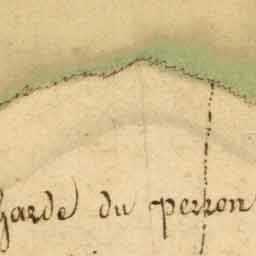 garde du perron